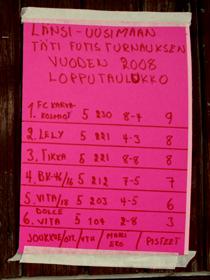 LÄNSI-UUSIMAAN
TÄTI FUTISTURNAUKSEN
VUODEN 2008
LOPPUTAULUKKO
1. FC KARVA-
KOSMOT 5 230 8-7 9
2. LELY 5 221 4-3 8
3. TIKKA 5 221 8-8 8
4. BK-46/16 5 212 7-5 7
5. VITA/18 5 203 4-5 6
DOLCE
6. VITA 5 104 2-8 3
JOUKKUE/OTT/VTH MAALI
ERO PISTEET